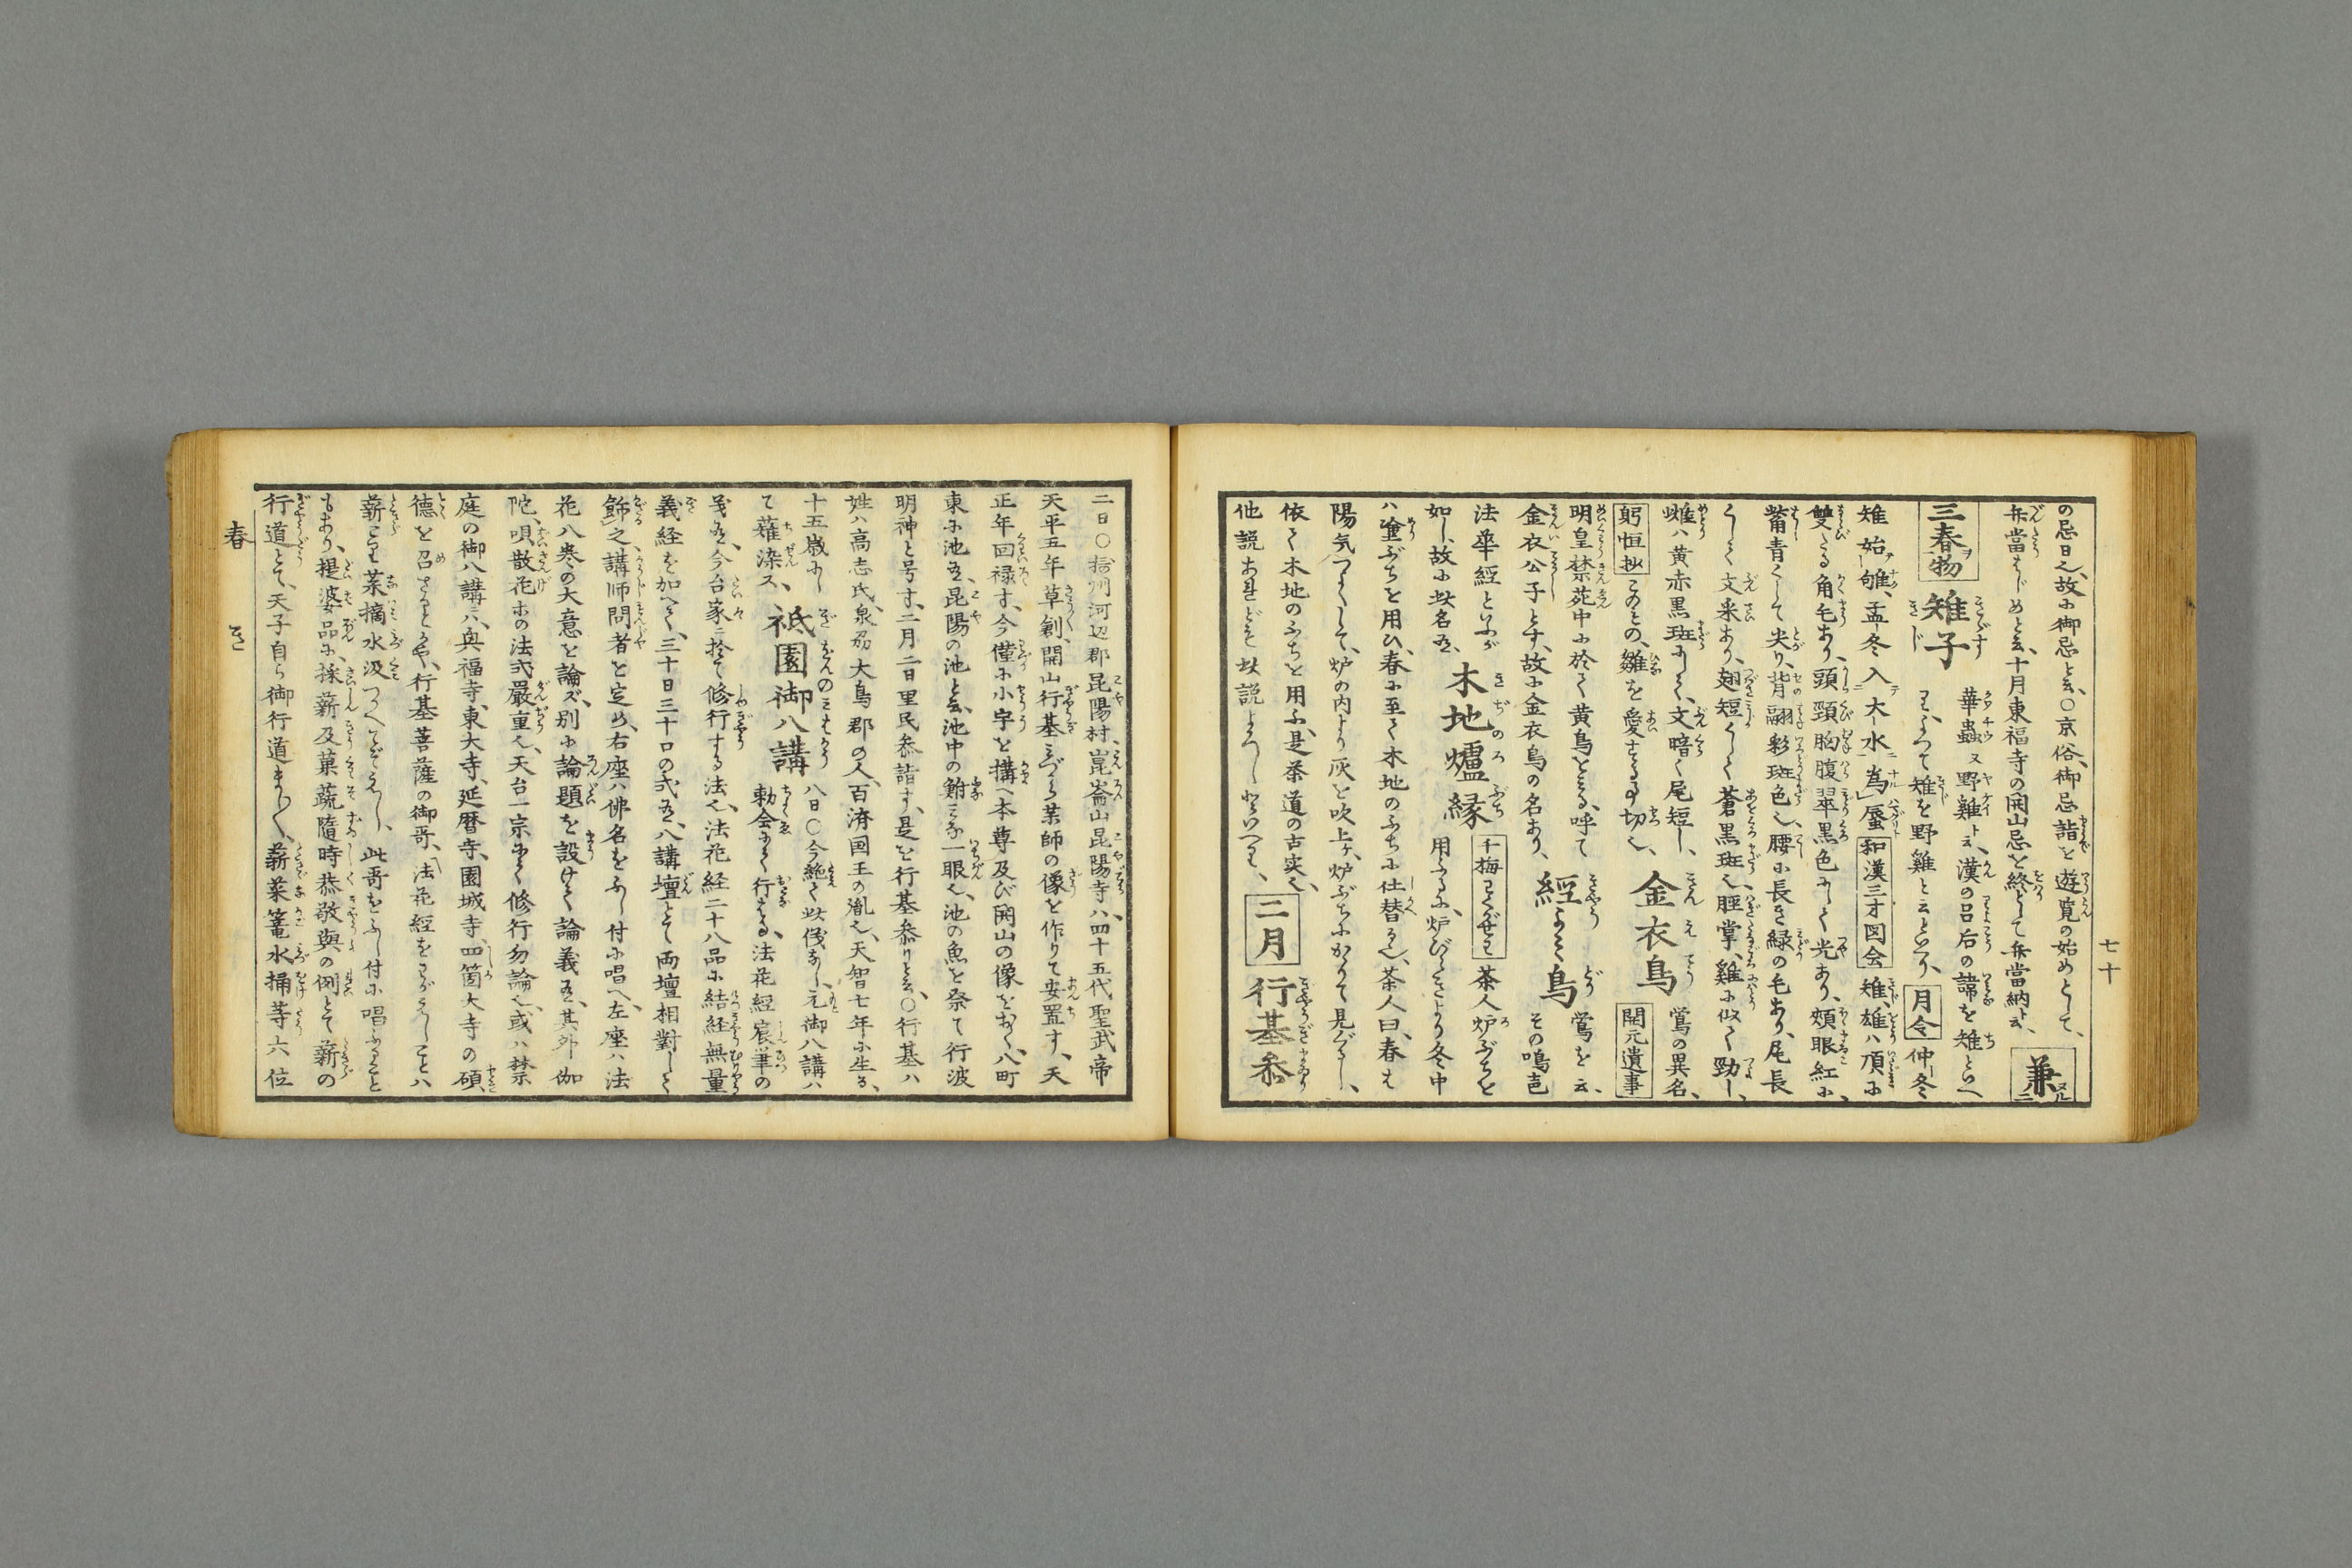 七十
の忌日也、故に御忌と云、○京俗、御忌詣を遊覧の始めとして、
弁當はじめと云、十月東福寺の開山忌を終として弁當納と云、兼
三春物 雉子 華蟲又野雞ト云、漢の呂后の諱を雉といへ
雉を野雞と云といへり、月令 仲冬
雉始雊、孟冬入大水為蜃 和漢三才図会 雉、雄ハ頂に
雙たる角毛あり、頭頸胸腹翠黒色にして光あり、頬眼紅に、
觜青くして尖り、背翮彩斑色也、腰に長き緑の毛あり、尾長
くして文采あり、翅短くして蒼黒斑也、脛掌、雞に似て勁し、
雌ハ黄赤黒斑にして、文暗く尾短し、金衣鳥 鶯の異名、
躬恒抄 このもの、雛を愛する事切也、開元遺事
明皇禁苑中に於て黄鳥をみる、呼て 鶯を云、
金衣公子とす、故に金衣鳥の名あり、經よみ鳥 その鳴声
法華經といふが 千梅 茶人炉ぶちを
如し、故に此名有、木地爐縁 用ふるに、炉びらきより冬中
ハ塗ぶちを用ひ、春に至て木地のふちに仕替る也、茶人曰、春は
陽気つよくして、炉の内より灰を吹上ケ、炉ぶちにかゝりて見ぐるし、
依て木地のふちを用ふ、是茶道の古実也、
他説あれども此説よろし 二月 行基参
二日○摂州河辺郡昆陽村、崑崙山昆陽寺ハ、四十五代聖武帝
天平五年草創、開山行基みづから薬師の像を作りて安置す、天
正年回禄す、今僅に小宇を搆へ本尊及び開山の像をおく、八町
東に池有、昆陽の池と云、池中の鮒みな一眼也、池の魚を祭て行波
明神と号す、二月二日里民参詣す、是を行基参りと云、○行基ハ
姓ハ高志氏、泉州大鳥郡の人、百済国王の胤也、天智七年に生る、
十五歳にし 八日○今絶て此侭なし、元御八講ハ
て薙染ス、祗園御八講 勅会にて行はる、法花經宸筆の
義有、今台家ニ於て修行する法也、法花経二十八品に結経無量
義経を加へて、三十日三十口の式有、八講壇とて両壇相對して
飾之、講师問者を定め、右座ハ佛名をふし付に唱へ、左座ハ法
花八巻の大意を論ズ、別に論題を設けて論義有、其外伽
陀、唄散花等の法式嚴重也、天台一宗にて修行勿論也、或ハ禁
庭の御八講ニハ、興福寺、東大寺、延暦寺、園城寺、四箇大寺の碩
德を召さると也、行基菩薩の御哥、法花経をわがえしことハ
薪こり菜摘水汲つかへてぞえし、此哥をふし付に唱ふること
もあり、提婆品に、採薪及菓蓏隨時恭敬與の例とて薪の
行道とて、天子自ら御行道まし〳〵、薪菜篭水桶等六位
春 き